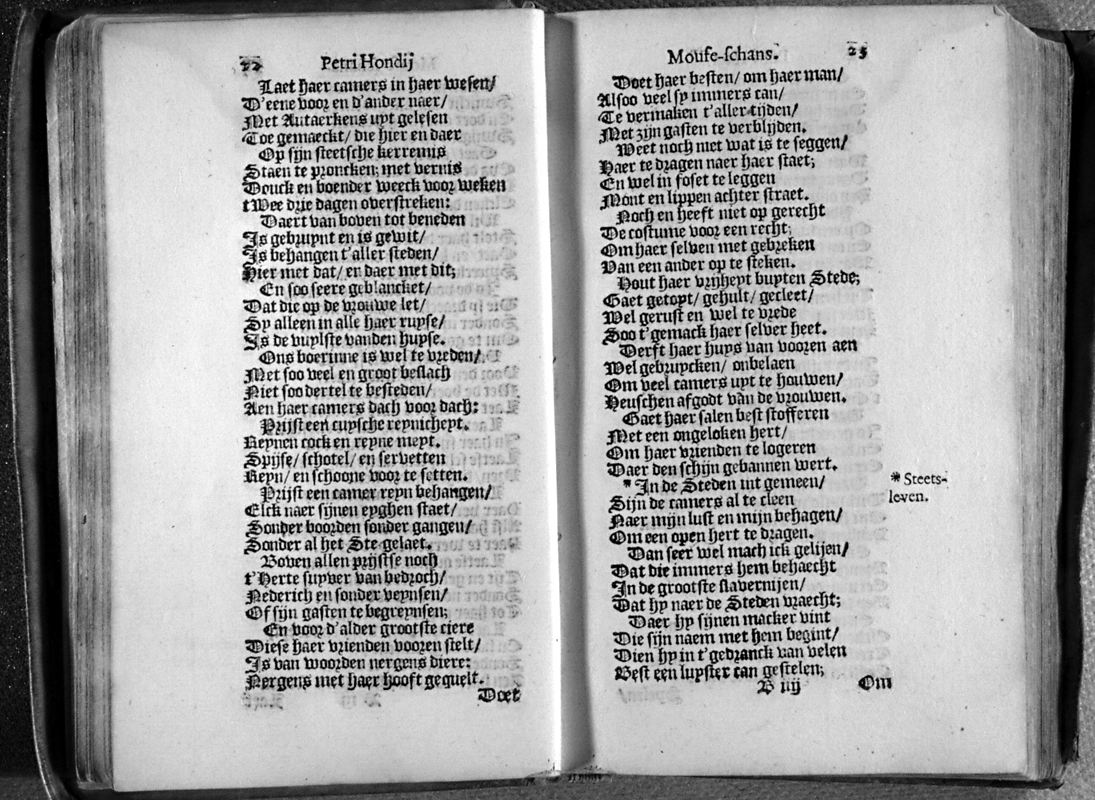 22 Petri Hondij
Laet haer camers in haer wesen/
D'eene voor en d'ander naer/
Met Autaerkens uyt gelesen
Toe gemaeckt/ die hier en daer
Op sijn steetsche kerremis
Staen te proncken; met vernis
Douck en boender weeck voor weken
tWee drie dagen overstreken:
Daert van boven tot beneden
Is gebruynt en is gewit/
Is behangen t'aller steden/
Hier met dat/ en daer met dit;
En soo seere geblancket/
Dat die op de vrouwe let/
Sy alleen in alle haer ruyse/
Is de vuylste vanden huyse.
Ons boerinne is wel te vreden/
Met soo veel en groot beslach
Niet soo dertel te besteden/
Aen haer camers dach voor dach:
Prijst een cuysche reynicheyt.
Reynen cock en reyne meyt.
Spijse/ schotel/ en servetten
Reyn/ en schoone voor te setten.
Prijst een camer reyn behangen/
Elck naer sijnen eyghen staet/
Sonder boorden sonder gangen/
Sonder al het Ste-gelaet.
Boven allen prijstse noch
t'Herte suyver van bedroch/
Nederich en sonder veynsen/
Of sijn gasten te begreynsen;
En voor d'alder grootste ciere
Diese haer vrienden vooren stelt/
Is van woorden nergens diere:
Nergens met haer hooft gequelt.
Doet
Moufe-schans. 25
Doet haer besten/ om haer man/
Alsoo veel sy immers can/
Te vermaken t'aller tijden/
Met zijn gasten te verblijden.
Weet noch niet wat is te seggen/
Haer te dragen naer haer staet;
En wel in foset te leggen
Mont en lippen achter straet.
Noch en heeft niet op gerecht
De costume voor een recht;
Om haer selven met gebreken
Van een ander op te steken.
Hout haer vrijheyt buyten Stede;
Gaet getoyt/ gehult/ gecleet/
Wel gerust en wel te vrede
Soo t'gemack haer selver heet.
Derft haer huys van vooren aen
Wel gebruycken/ onbelaen
Om veel camers uyt te houwen/
Heuschen afgodt van de vrouwen.
Gaet haer salen best stofferen
Met een ongeloken hert/
Om haer vrienden te logeren
Daer den schijn gebannen wert.
* In de Steden int gemeen/
Sijn de camers al te cleen
Naer mijn lust en mijn behagen/
Om een open hert te dragen.
Dan seer wel mach ick gelijen/
Dat die immers hem behaecht
In de grootste slavernijen/
Dat hy naer de Steden vraecht;
Daer hy sijnen macker vint
Die sijn naem met hem begint/
Dien hy in t'gedranck van velen
Best een luyster can gestelen;
* Steets-
leven.
B iij Om